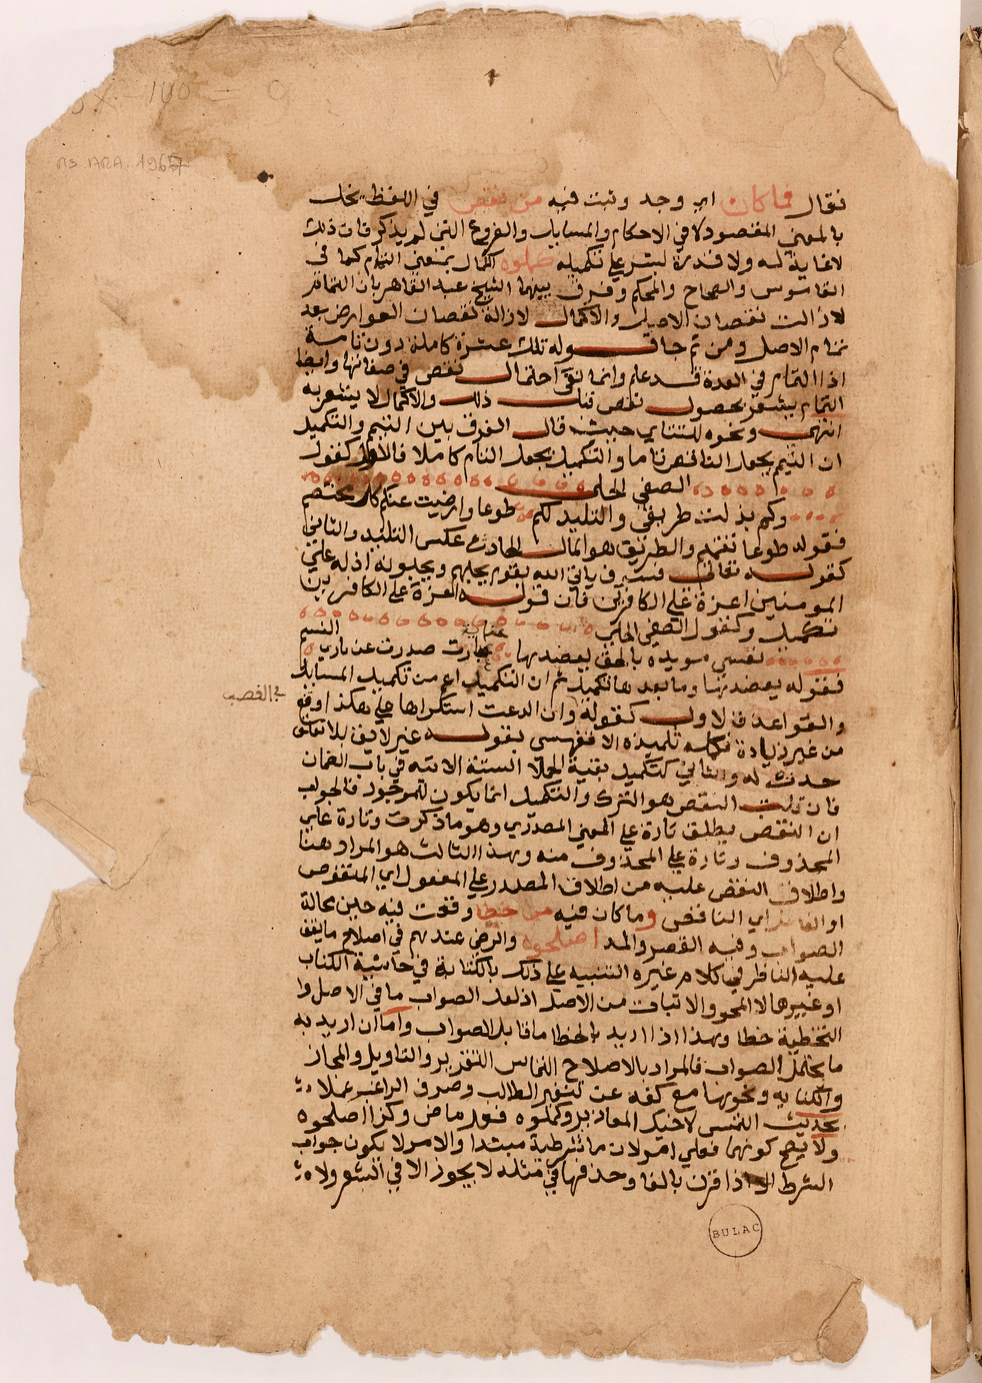 MS ARA. 1967
فقال فما كان اي وجد وثبت فيه من نقص في اللفظ يخل
بالمعنى المقصود لا في الاحكام والمسايل والفروع التي لم يذكر فان ذلك
لا غاية له ولا قدرة لبشر على تكميله كملوه الكمال بمعنى التمام كما في
القاموس والصحاح والمحكم وفرق بينهما الشيخ عبد القاهر بان التمام
لازالت نقصان الاصيل والاكمال لازالة نقصان العوارض بعد
تمام الاصل ومن ثم جا قوله تلك عشرة كاملة دون تامة
اذا التمام في العدة قد علم وانما نفى احتمال نقص في صفاتها وايضا
التمام يشعر بحصول نقص قبل ذلك والاكمال لا يشعر به
انتهى ونحوه للتتاي حيث قال الفرق بين التتيم والتكميل
ان التتيم يجعل الناقص تاما والتكميل يجعل التام كاملا فالاول كقول
الصفي الحلي
وكم بذلت طريفي والتليد لكم طوعا وارضيت عنكم كل مختصم
فقوله طوعا تتميم والطريق هو المال الحادث عكس التليد والثاني
كقوله تعالى فسوف ياتي الله بقوم يحبهم ويحبونه اذلة على
المومنين اعزة على الكافرين فان قوله اعزة على الكافرين
تكميل وكقول الصفي الحلي
نفسي مويدة بالحق يعضدها عناية صدرت عن باري النسم
فقوله يعضدها وما بعدها تكميل ثم ان التكميل اعم من تكميل المسايل
في الغصب
والقواعد فالاول كقوله وان ادعت استكراها على هكذا وقع
من غير زيادة فكمله تلميذه الاقفهسي بقوله غير لايق بلا تعلق
حدث له والثاني كتكميل بقية الجملا الستة الاتية في باب الضمان
فان قلت النقص هو الترك والتكميل انما يكون للموجود فالجواب
ان النقص يطلق تارة على المعنى المصدري وهو ما ذكرت وتارة على
المحذوف وتارة على المحذوف منه وبهذا الثالث هو المراد هنا
واطلاق النقص عليه من اطلاق المصدر على المفعول اي المنقوص
او الفاعل اي الناقص وما كان فيه من خطا وقعت فيه حين مخالفة
الصواب وفيه القصر والمد اصلحوه والرضى عندهم في اصلاح ما يقف
عليه الناظر في كلام غيره التنبيه على ذلك بالكتابة في حاشية الكتاب
او غيرها لا المحو والاثبات من الاصل اذ لعل الصواب ما في الاصل وا
التخطية خطا وبهذا اذا اريد بالخطا ما قابل الصواب واما ان اريد به
ما يحتمل الصواب فالمراد بالاصلاح التماس التقدير والتاويل والمجاز
والكناية ونحوها مع كفه عن تنفير الطالب وصرف الراغب عملا
بحديث التمس لاخيك المعاذير وكملوه فعل ماض وكذا اصلحوه
ولا يصح كونهما فعلي امر لان ما شرطية مبتدا والامر لا يكون جواب
الشرط الا اذا قرن بالفا وحذفها في مثله لا يجوز الا في الشعر ولا
BULAC